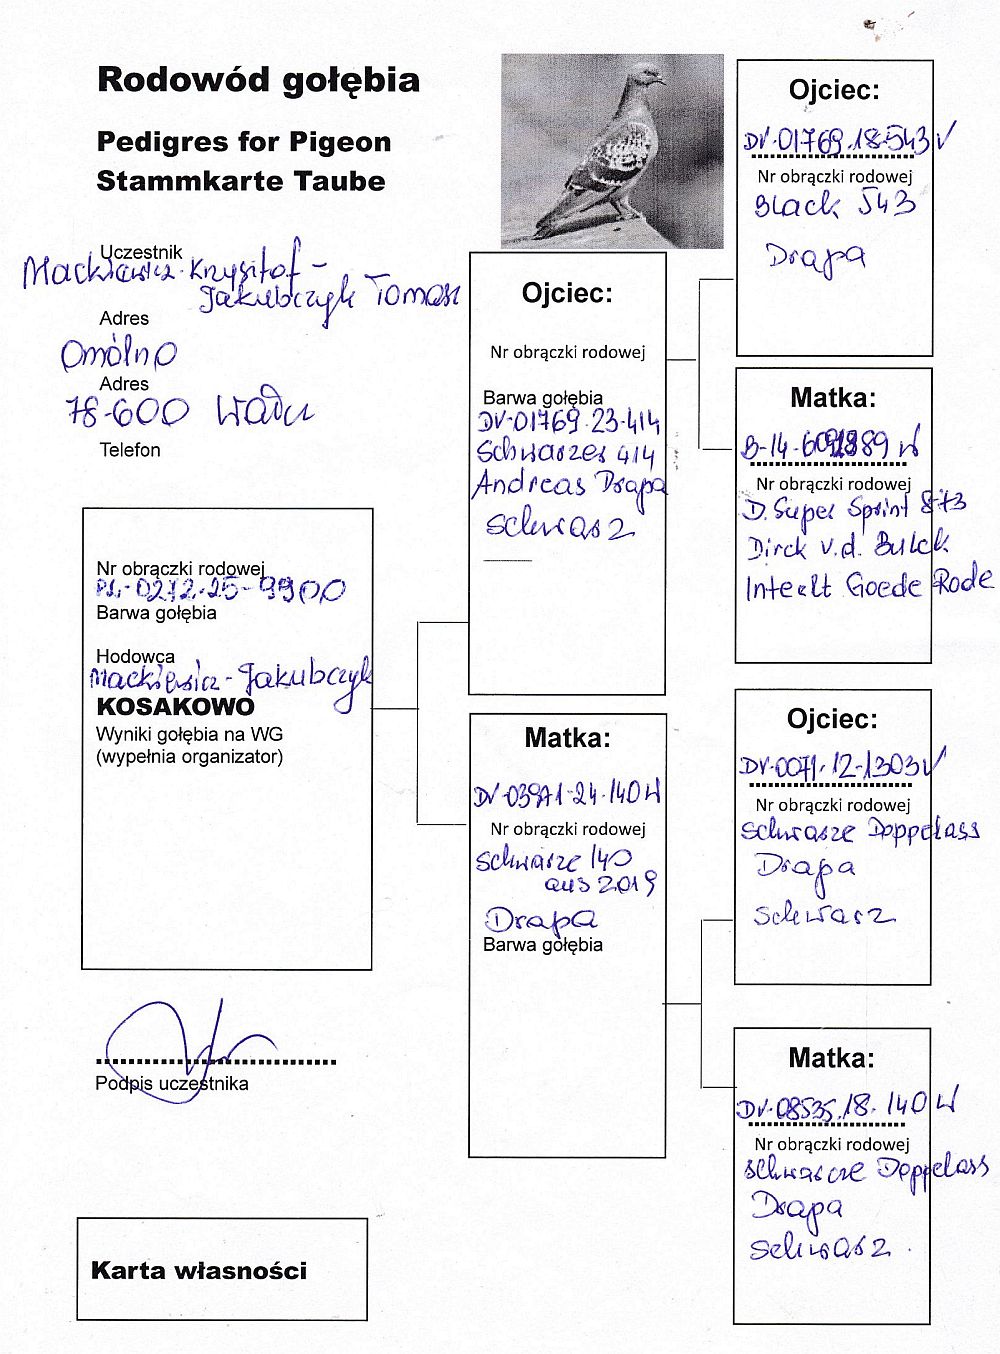 Rodowód gołębia
Pedigres for Pigeon
Stammkarte Taube
Uczestnik
Mackiewicz Krzysztof -
Jakubczyk Tomasz
Adres
Omólno
Adres
78-600 Wałcz
Telefon
Nr obrączki rodowej
PL-0272-25-9900
Barwa gołębia
Hodowca
Mackiewicz-Jakubczyk
KOSAKOWO
Wyniki gołębia na WG
(wypełnia organizator)
Podpis uczestnika
Karta własności
Ojciec:
Nr obrączki rodowej
Barwa gołębia
DV-01769-23-414
Schwarzer 414
Andreas Drapa
Schwarz
Matka:
DV-03971-24-140 W
Nr obrączki rodowej
Schwarze 140
aus 2019
Drapa
Barwa gołębia
Ojciec:
DV-01769-18-543 V
Nr obrączki rodowej
Black 543
Drapa
Matka:
B-14- W
Nr obrączki rodowej
D. Super Sprint 873
Dirck v.d. Bulck
Inteelt Goede Rode
Ojciec:
DV-0071-12-1303 V
Nr obrączki rodowej
Schwarze Doppelass
Drapa
Schwarz
Matka:
DV-08535-18-140 W
Nr obrączki rodowej
Schwarze Doppelass
Drapa
Schwarz